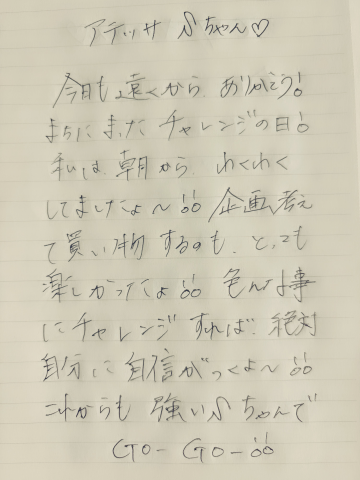 アデッサ Sちゃん♡
今日も遠くから、ありがとう!
まちにまったチャレンジの日!
私は、朝から、わくわく
してましたよ〜!! 企画考え
て買い物するのも、とっても
楽しかったよ!! 色んな事
にチャレンジすれば、絶対
自分に自信がつくよ〜!!
これからも 強いSちゃんで
GO- GO-!!